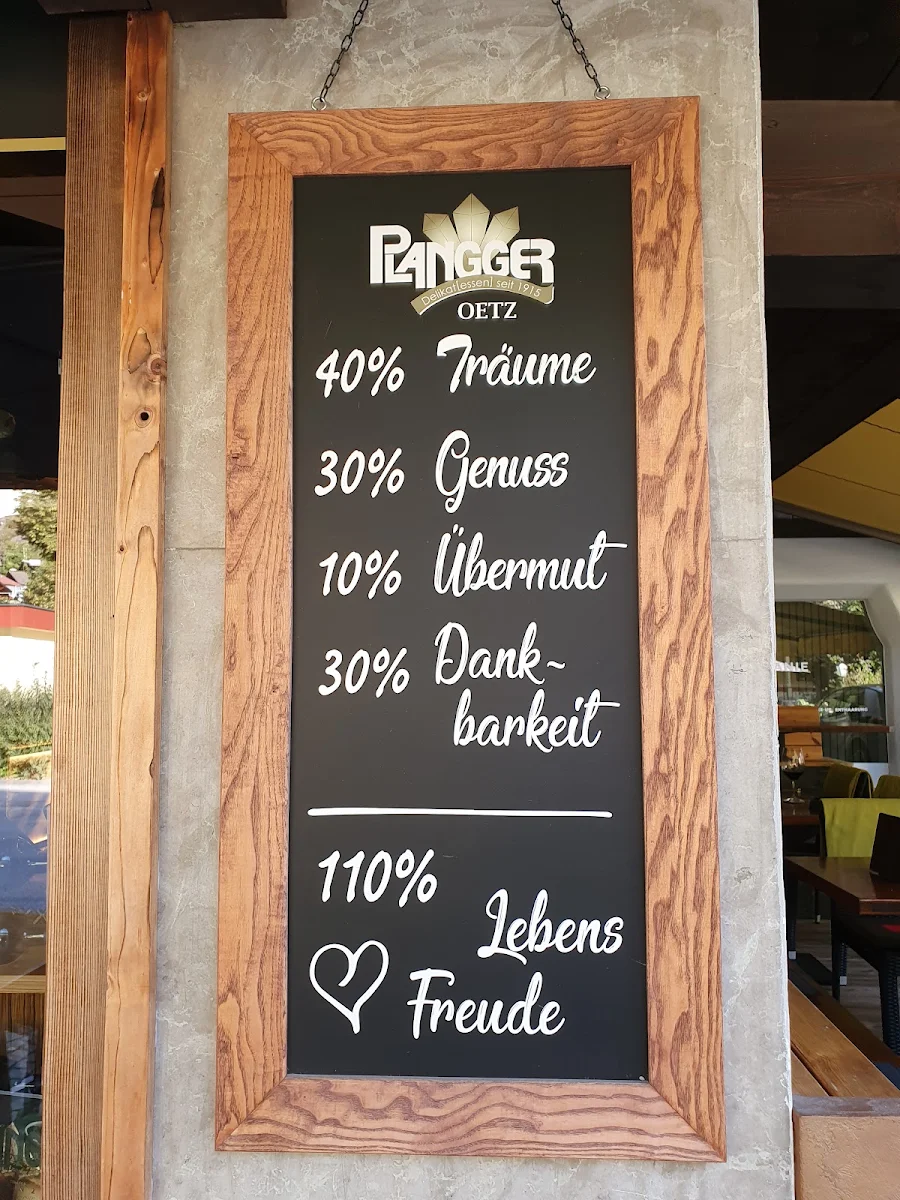 PLANGGER
Delikat[essen] seit 1915
OETZ
40% Träume
30% Genuss
10% Übermut
30% Dank-
barkeit
110%
Lebens
Freude